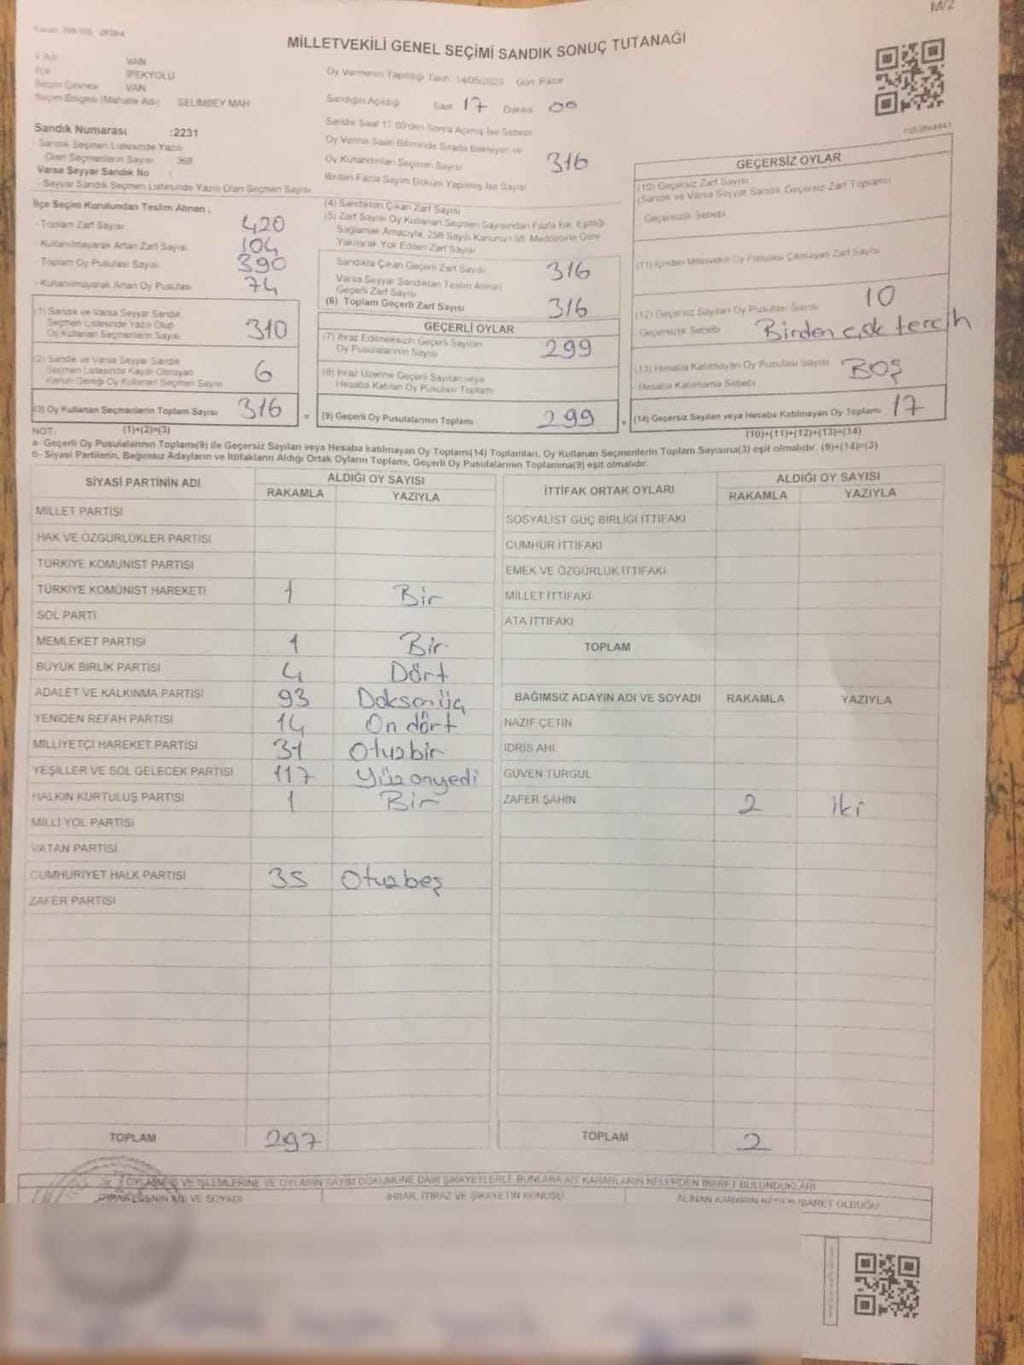 M/2
MİLLETVEKİLİ GENEL SEÇİMİ SANDIK SONUÇ TUTANAĞI
VAN
İPEKYOLU
Seçim Çevresi VAN
Seçim Bölgesi (Mahalle Adı) SELİMBEY MAH
Sandık Numarası :2231
Sandık Seçmen Listesinde Yazılı
Olan Seçmenlerin Sayısı 368
Varsa Seyyar Sandık No :
- Seyyar Sandık Seçmen Listesinde Yazılı Olan Seçmen Sayısı
Oy Vermenin Yapıldığı Tarih 14/05/2023 Gün Pazar
Sandığın Açıldığı Saat 17 Dakika 00
Sandık Saat 17.00'den Sonra Açılmış İse Sebebi
Oy Kullandırılan Seçmen Sayısı 316
Birden Fazla Sayım Döküm Yapılmış İse Sayısı
İlçe Seçim Kurulundan Teslim Alınan ;
- Toplam Zarf Sayısı 420
- Kullanılmayarak Artan Zarf Sayısı 104
- Toplam Oy Pusulası Sayısı 390
- Kullanılmayarak Artan Oy Pusulası 74
(1) Sandık ve Varsa Seyyar Sandık
Seçmen Listesinde Yazılı Olup
Oy Kullanan Seçmenlerin Sayısı 310
(2) Sandık ve Varsa Seyyar Sandık
Seçmen Listesinde Kaydı Olmayan
Kanun Gereği Oy Kullanan Seçmen Sayısı 6
(3) Oy Kullanan Seçmenlerin Toplam Sayısı 316
(4) Sandıktan Çıkan Zarf Sayısı
(5) Zarf Sayısı Oy Kullanan Seçmen Sayısından Fazla İse, Eşitliği
Sağlamak Amacıyla, 298 Sayılı Kanunun 98. Maddesine Göre
Yakılarak Yok Edilen Zarf Sayısı
Sandıkta Çıkan Geçerli Zarf Sayısı 316
Varsa Seyyar Sandıktan Teslim Alınan
Geçerli Zarf Sayısı
(6) Toplam Geçerli Zarf Sayısı 316
GEÇERLİ OYLAR
(7) İtiraz Edilmeksizin Geçerli Sayılan
Oy Pusulalarının Sayısı 299
(8) İtiraz Üzerine Geçerli Sayılan veya
Hesaba Katılan Oy Pusulası Toplamı
(9) Geçerli Oy Pusulalarının Toplamı 299
GEÇERSİZ OYLAR
(10) Geçersiz Zarf Sayısı
(Sandık ve Varsa Seyyar Sandık Geçersiz Zarf Toplamı)
Geçersizlik Sebebi
(11) İçinden Milletvekili Oy Pusulası Çıkmayan Zarf Sayısı
(12) Geçersiz Sayılan Oy Pusulası Sayısı 10
Geçersizlik Sebebi Birden çok tercih
(13) Hesaba Katılmayan Oy Pusulası Sayısı BOŞ
- Hesaba Katılmama Sebebi
(14) Geçersiz Sayılan veya Hesaba Katılmayan Oy Toplamı 17
NOT: (1)+(2)=(3)
(10)+(11)+(12)+(13)=(14)
a- Geçerli Oy Pusulalarının Toplamı(9) ile Geçersiz Sayılan veya Hesaba katılmayan Oy Toplamı(14) Toplamları, Oy Kullanan Seçmenlerin Toplam Sayısına(3) eşit olmalıdır. (9)+(14)=(3)
b- Siyasi Partilerin, Bağımsız Adayların ve İttifakların Aldığı Ortak Oyların Toplamı, Geçerli Oy Pusulalarının Toplamına(9) eşit olmalıdır.
SİYASİ PARTİNİN ADI ALDIĞI OY SAYISI
RAKAMLA YAZIYLA
MİLLET PARTİSİ
HAK VE ÖZGÜRLÜKLER PARTİSİ
TÜRKİYE KOMÜNİST PARTİSİ
TÜRKİYE KOMÜNİST HAREKETİ 1 Bir
SOL PARTİ
MEMLEKET PARTİSİ 1 Bir
BÜYÜK BİRLİK PARTİSİ 4 Dört
ADALET VE KALKINMA PARTİSİ 93 Doksanüç
YENİDEN REFAH PARTİSİ 14 On dört
MİLLİYETÇİ HAREKET PARTİSİ 31 Otuzbir
YEŞİLLER VE SOL GELECEK PARTİSİ 117 Yüzonyedi
HALKIN KURTULUŞ PARTİSİ 1 Bir
MİLLİ YOL PARTİSİ
VATAN PARTİSİ
CUMHURİYET HALK PARTİSİ 35 Otuzbeş
ZAFER PARTİSİ
TOPLAM 297
İTTİFAK ORTAK OYLARI ALDIĞI OY SAYISI
RAKAMLA YAZIYLA
SOSYALİST GÜÇ BİRLİĞİ İTTİFAKI
CUMHUR İTTİFAKI
EMEK VE ÖZGÜRLÜK İTTİFAKI
MİLLET İTTİFAKI
ATA İTTİFAKI
TOPLAM
BAĞIMSIZ ADAYIN ADI VE SOYADI RAKAMLA YAZIYLA
NAZİF ÇETİN
İDRİS AHİ
GÜVEN TURGUL
ZAFER ŞAHİN 2 iki
TOPLAM 2
OYLAMA İŞ VE İŞLEMLERİNE VE OYLARIN SAYIM DÖKÜMÜNE DAİR ŞİKAYETLERLE BUNLARA AİT KARARLARIN NELERDEN İBARET BULUNDUKLARI
İHBAR, İTİRAZ VE ŞİKAYETİN KONUSU
ALINAN KARARIN NEDEN İBARET OLDUĞU